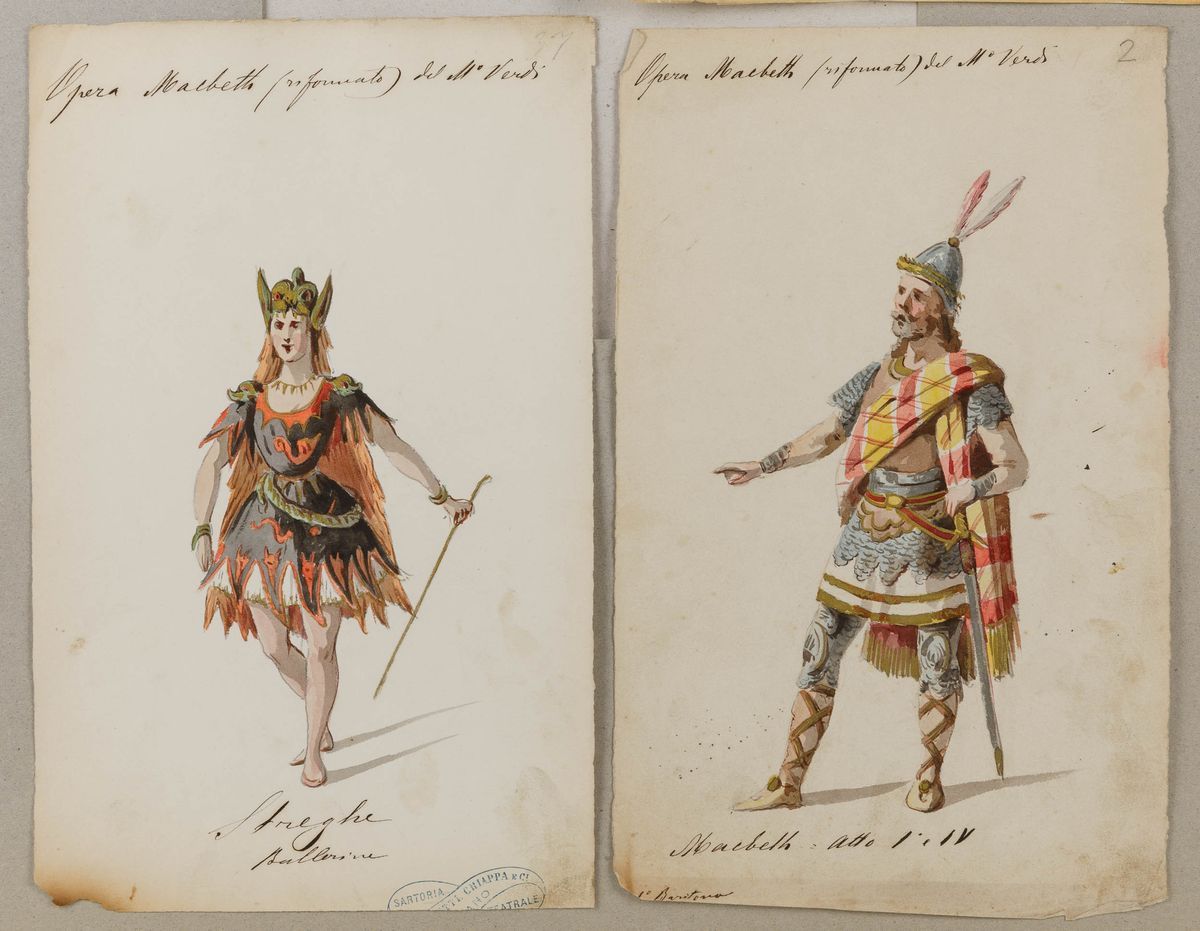 Opera Macbeth (riformato) del Mº Verdi
Streghe
Ballerine
SARTORIA
CHIAPPA & CI.
TEATRALE
Opera Macbeth (riformato) del Mº Verdi
2
Macbeth = Atto Iº e IV
1º Baritono